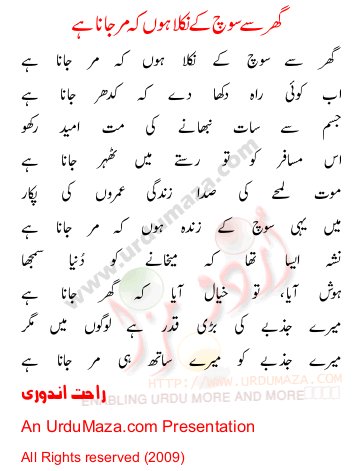 گھر سے سوچ کے نکلا ہوں کہ مر جانا ہے
گھر سے سوچ کے نکلا ہوں کہ مر جانا ہے
اب کوئی راہ دکھا دے کہ کدھر جانا ہے
جسم سے سات نبھانے کی مت امید رکھو
اس مسافر کو تو رستے میں ٹھہر جانا ہے
موت لمحے کی صدا زندگی عمروں کی پکار
میں یہی سوچ کے زندہ ہوں کہ مر جانا ہے
نشہ ایسا تھا کہ میخانے کو دُنیا سمجھا
ہوش آیا، تو خیال آیا کہ گھر جانا ہے
میرے جذبے کی بڑی قدر ہے لوگوں میں مگر
میرے جذبے کو میرے ساتھ ہی مر جانا ہے
راحت اندوری
www.urdumaza.com
اُردو مزا
HTTP://WWW.URDUMAZA.COM
ENABLING URDU MORE AND MORE
An UrduMaza.com Presentation
All Rights reserved (2009)